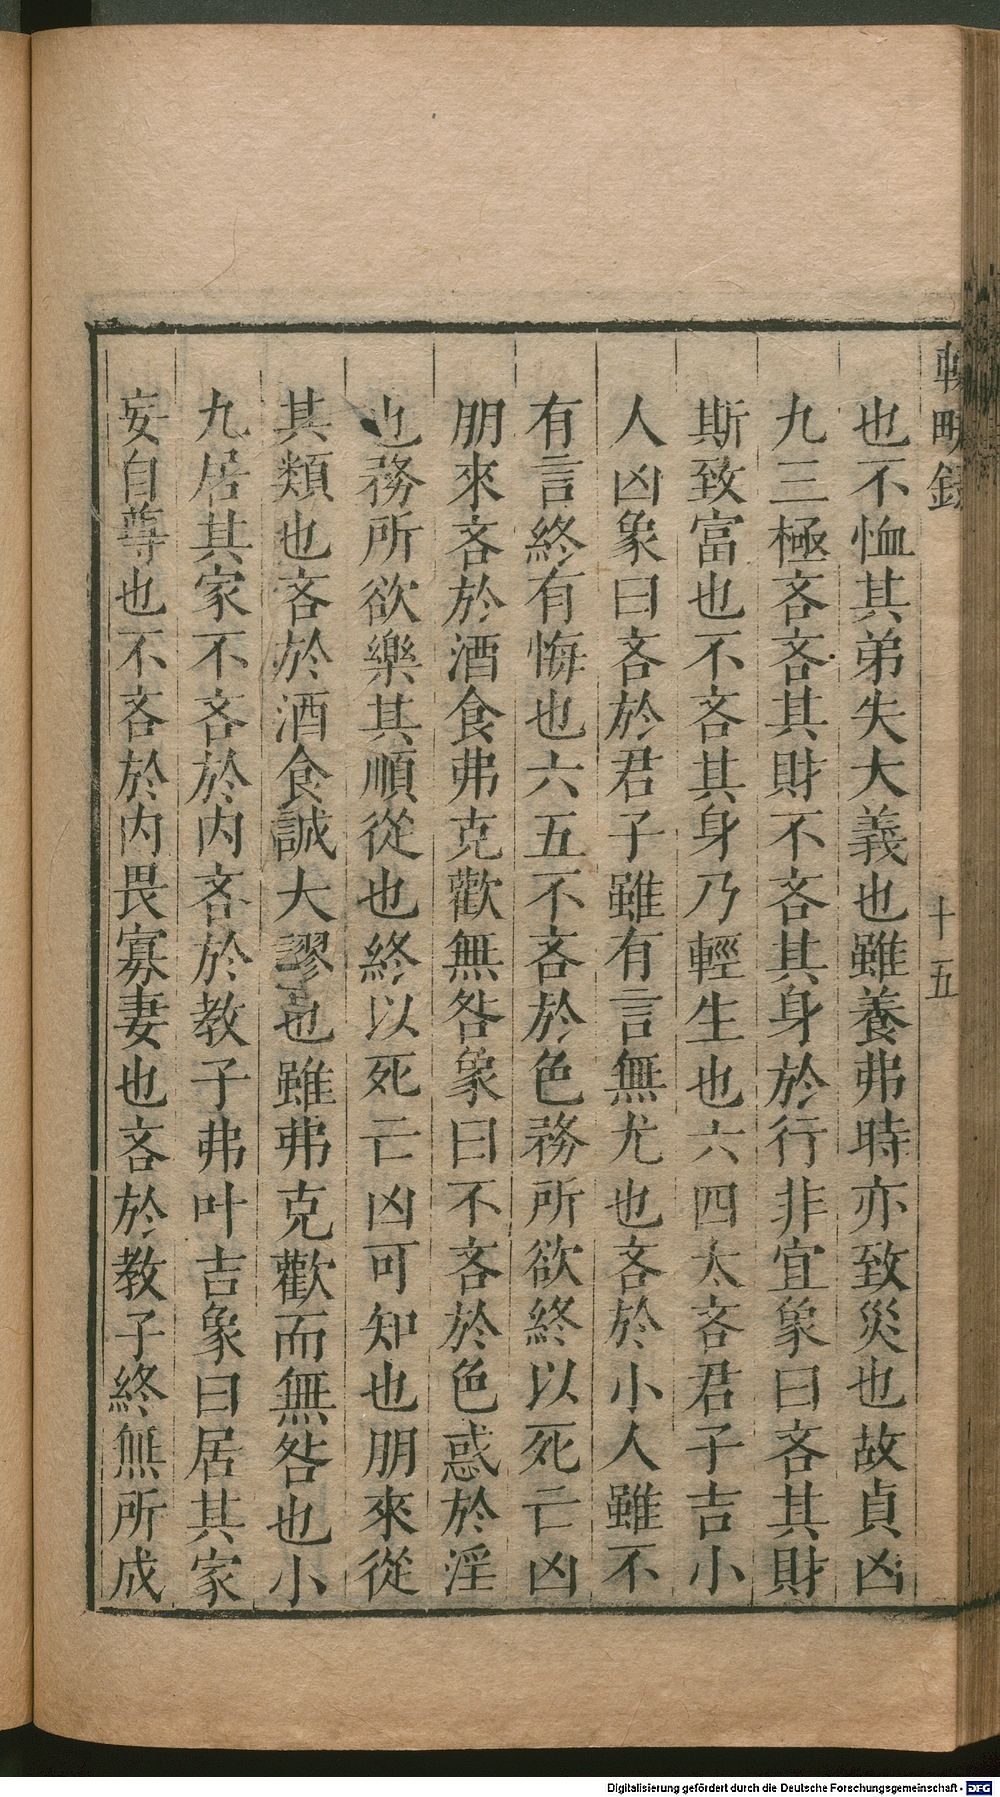 十五
也不恤其弟失大義也雖養弗時亦致災也故貞凶
九三極吝吝其財不吝其身於行非宜象曰吝其財
斯致富也不吝其身乃輕生也六四太吝君子吉小
人凶象曰吝於君子雖有言無尤也吝於小人雖不
有言終有悔也六五不吝於色務所欲終以死亡凶
朋來吝於酒食弗克歡無咎象曰不吝於色惑於淫
也務所欲樂其順從也終以死亡凶可知也朋來從
其類也吝於酒食誠大謬也雖弗克歡而無咎也小
九居其家不吝於內吝於教子弗叶吉象曰居其家
妄自尊也不吝於內畏寡妻也吝於教子終無所成
Digitalisierung gefördert durch die Deutsche Forschungsgemeinschaft - DFG